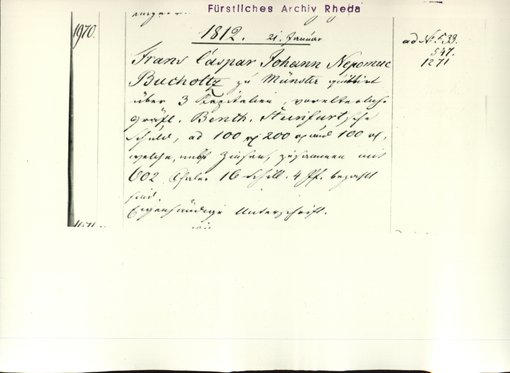 Fürstliches Archiv Rheda
1970.
1812. 21. Januar
ad N. 533.
547.
1271
Franz Caspar Johann Nepomuc
Bucholtz zu Münster quittirt
über 3 Kapitalien, vorelterliche
gräfl. Benth. Steinfurtsche
Schuld, ad 100 200 und 100
welche, nebst Zinsen, zusammen mit
602 Thaler 16 Schill. 4 Pf. bezahlt
sind.
Eigenhändige Unterschrift.
1971.